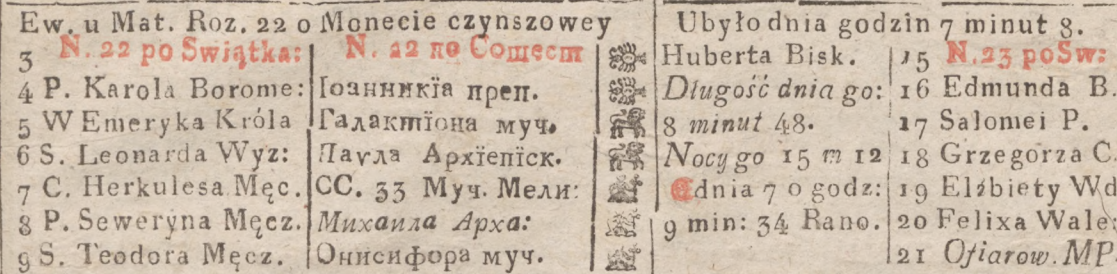 Ew. u Mat. Roz. 22 o Monecie czynszowey
3 N. 22 po Swiątka:
4 P. Karola Borome:
5 W Emeryka Króla
6 S. Leonarda Wyz:
7 C. Herkulesa Męc.
8 P. Seweryna Męcz.
9 S. Teodora Męcz.
N. 22 по Сошест
Іоанникїа преп.
Галактїона муч.
Паула Архїепїск.
СС. 33 Муч. Мели:
Михаила Арха:
Онисифора муч.
Ubyło dnia godzin 7 minut 8.
Huberta Bisk.
Długość dnia go:
8 minut 48.
Nocy go 15 m 12
dnia 7 o godz:
9 min: 34 Rano.
15 N. 23 po Sw:
16 Edmunda B.
17 Salomei P.
18 Grzegorza C.
19 Elżbiety Wd
20 Felixa Wale
21 Ofiarow. MP